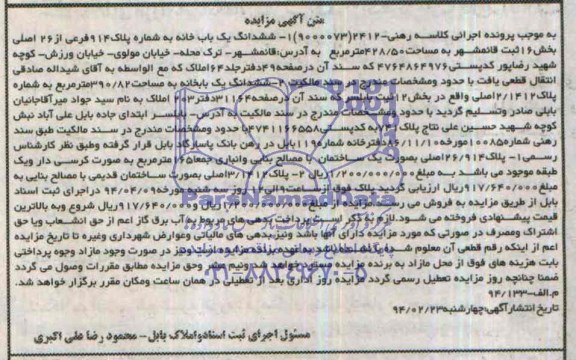 متن آگهی مزایده
به موجب پرونده اجرائی کلاسه رهنی-۲۴۱۲(۹۰۰۰۰۷۳)۱- ششدانگ یک باب خانه به شماره پلاک۹۱۴فرعی از۲۶ اصلی
بخش۱۶ثبت قائمشهر به مساحت۴۲۸/۵۰مترمربع به آدرس:قائمشهر- ترک محله- خیابان مولوی- خیابان ورزش- کوچه
شهید رضاپور کدپستی۴۷۶۴۸۶۴۹۷۶ که سند آن درصفحه۴۹دفترجلد۶۴املاک که مع الواسطه به آقای شیداله صادقی
انتقال قطعی یافت با حدود ومشخصات مندرج در سند مالکیت ۲-ششدانگ یک بابخانه به مساحت۳۹۰/۸۲مترمربع به شماره
پلاک۲/۱۴۱۲اصلی واقع در بخش۱۲ثبت بابلسر که سند آن درصفحه۶۴ ۳۱۱دفتر۲۰۳ املاک به نام سید جواد میرآقاجانیان
بابلی صادر وتسلیم گردید با حدود ومشخصات مندرج در سند مالکیت به آدرس- بابلسر ابتدای جاده بابل علی آباد نبش
کوچه شهید حسین علی نتاج پلاک۴۱ به کدپستی۴۷۴۱۱۶۶۵۵۸ با حدود ومشخصات مندرج در سند مالکیت طبق سند
رهنی شماره۱۰۰۸۵۰مورخه۸۶/۱۱/۱۰دفترخانه شماره۱۱۹بابل در رهن بانک پاسارگاد بابل قرار گرفته وطبق نظر کارشناس
رسمی۱- پلاک۲۶/۹۱۴اصلی بصورت یک ساختمان با مصالح بنایی وانباری جمعا۱۶۵مترمربع به صورت کرسی دار ویک
طبقه موجود می باشد. به مبلغ ۱/۲۰۰/۰۰۰/۰۰۰ریال ۲- پلاک۳/۱۴۱۲اصلی بصورت ساختمان قدیمی با مصالح بنایی به
مبلغ۹۱۷/۶۴۰/۰۰۰ریال ارزیابی گردید پلاک فوق ازساعت۹الی۱۲ روز سه شنبه مورخه۹۴/۰۴/۰۹ در اجرای ثبت اسناد
بابل از طریق مزایده به فروش می رسد ۹۱۷/۶۴۰/۰۰۰ریال شروع وبه بالاترین
قیمت پیشنهادی فروخته می شود.لازم به ذکر است پرداخت بدهی های مربوط به آب برق گاز اعم از حق انشعاب ویا حق
اشتراک ومصرف در صورتی که مورد مزایده دارای آنها باشد ونیزبدهی های مالیاتی وعوارض شهرداری وغیره تا تاریخ مزایده
اعم از اینکه رقم قطعی آن معلوم شده نیز در صورت وجود مازاد وجوه پرداختی
بابت هزینه های فوق از محل مازاد به برنده مزایده مسترد خواهد شد ونیم عشر وحق مزایده مطابق مقررات وصول می گردد
ضمنا چنانچه روز مزایده تعطیل رسمی گردد مزایده روز اداری بعد از تعطیلی در همان ساعت ومکان مقرر برگزار خواهد شد.
م.الف-۹۴/۱۳۳
تاریخ انتشارآگهی:چهارشنبه۹۴/۰۲/۲۳
مسئول اجرای ثبت اسنادواملاک بابل- محمود رضا علی اکبری
ParsNamadData
۰۲۱-۸۸۳۴۹۶۷۰-۵